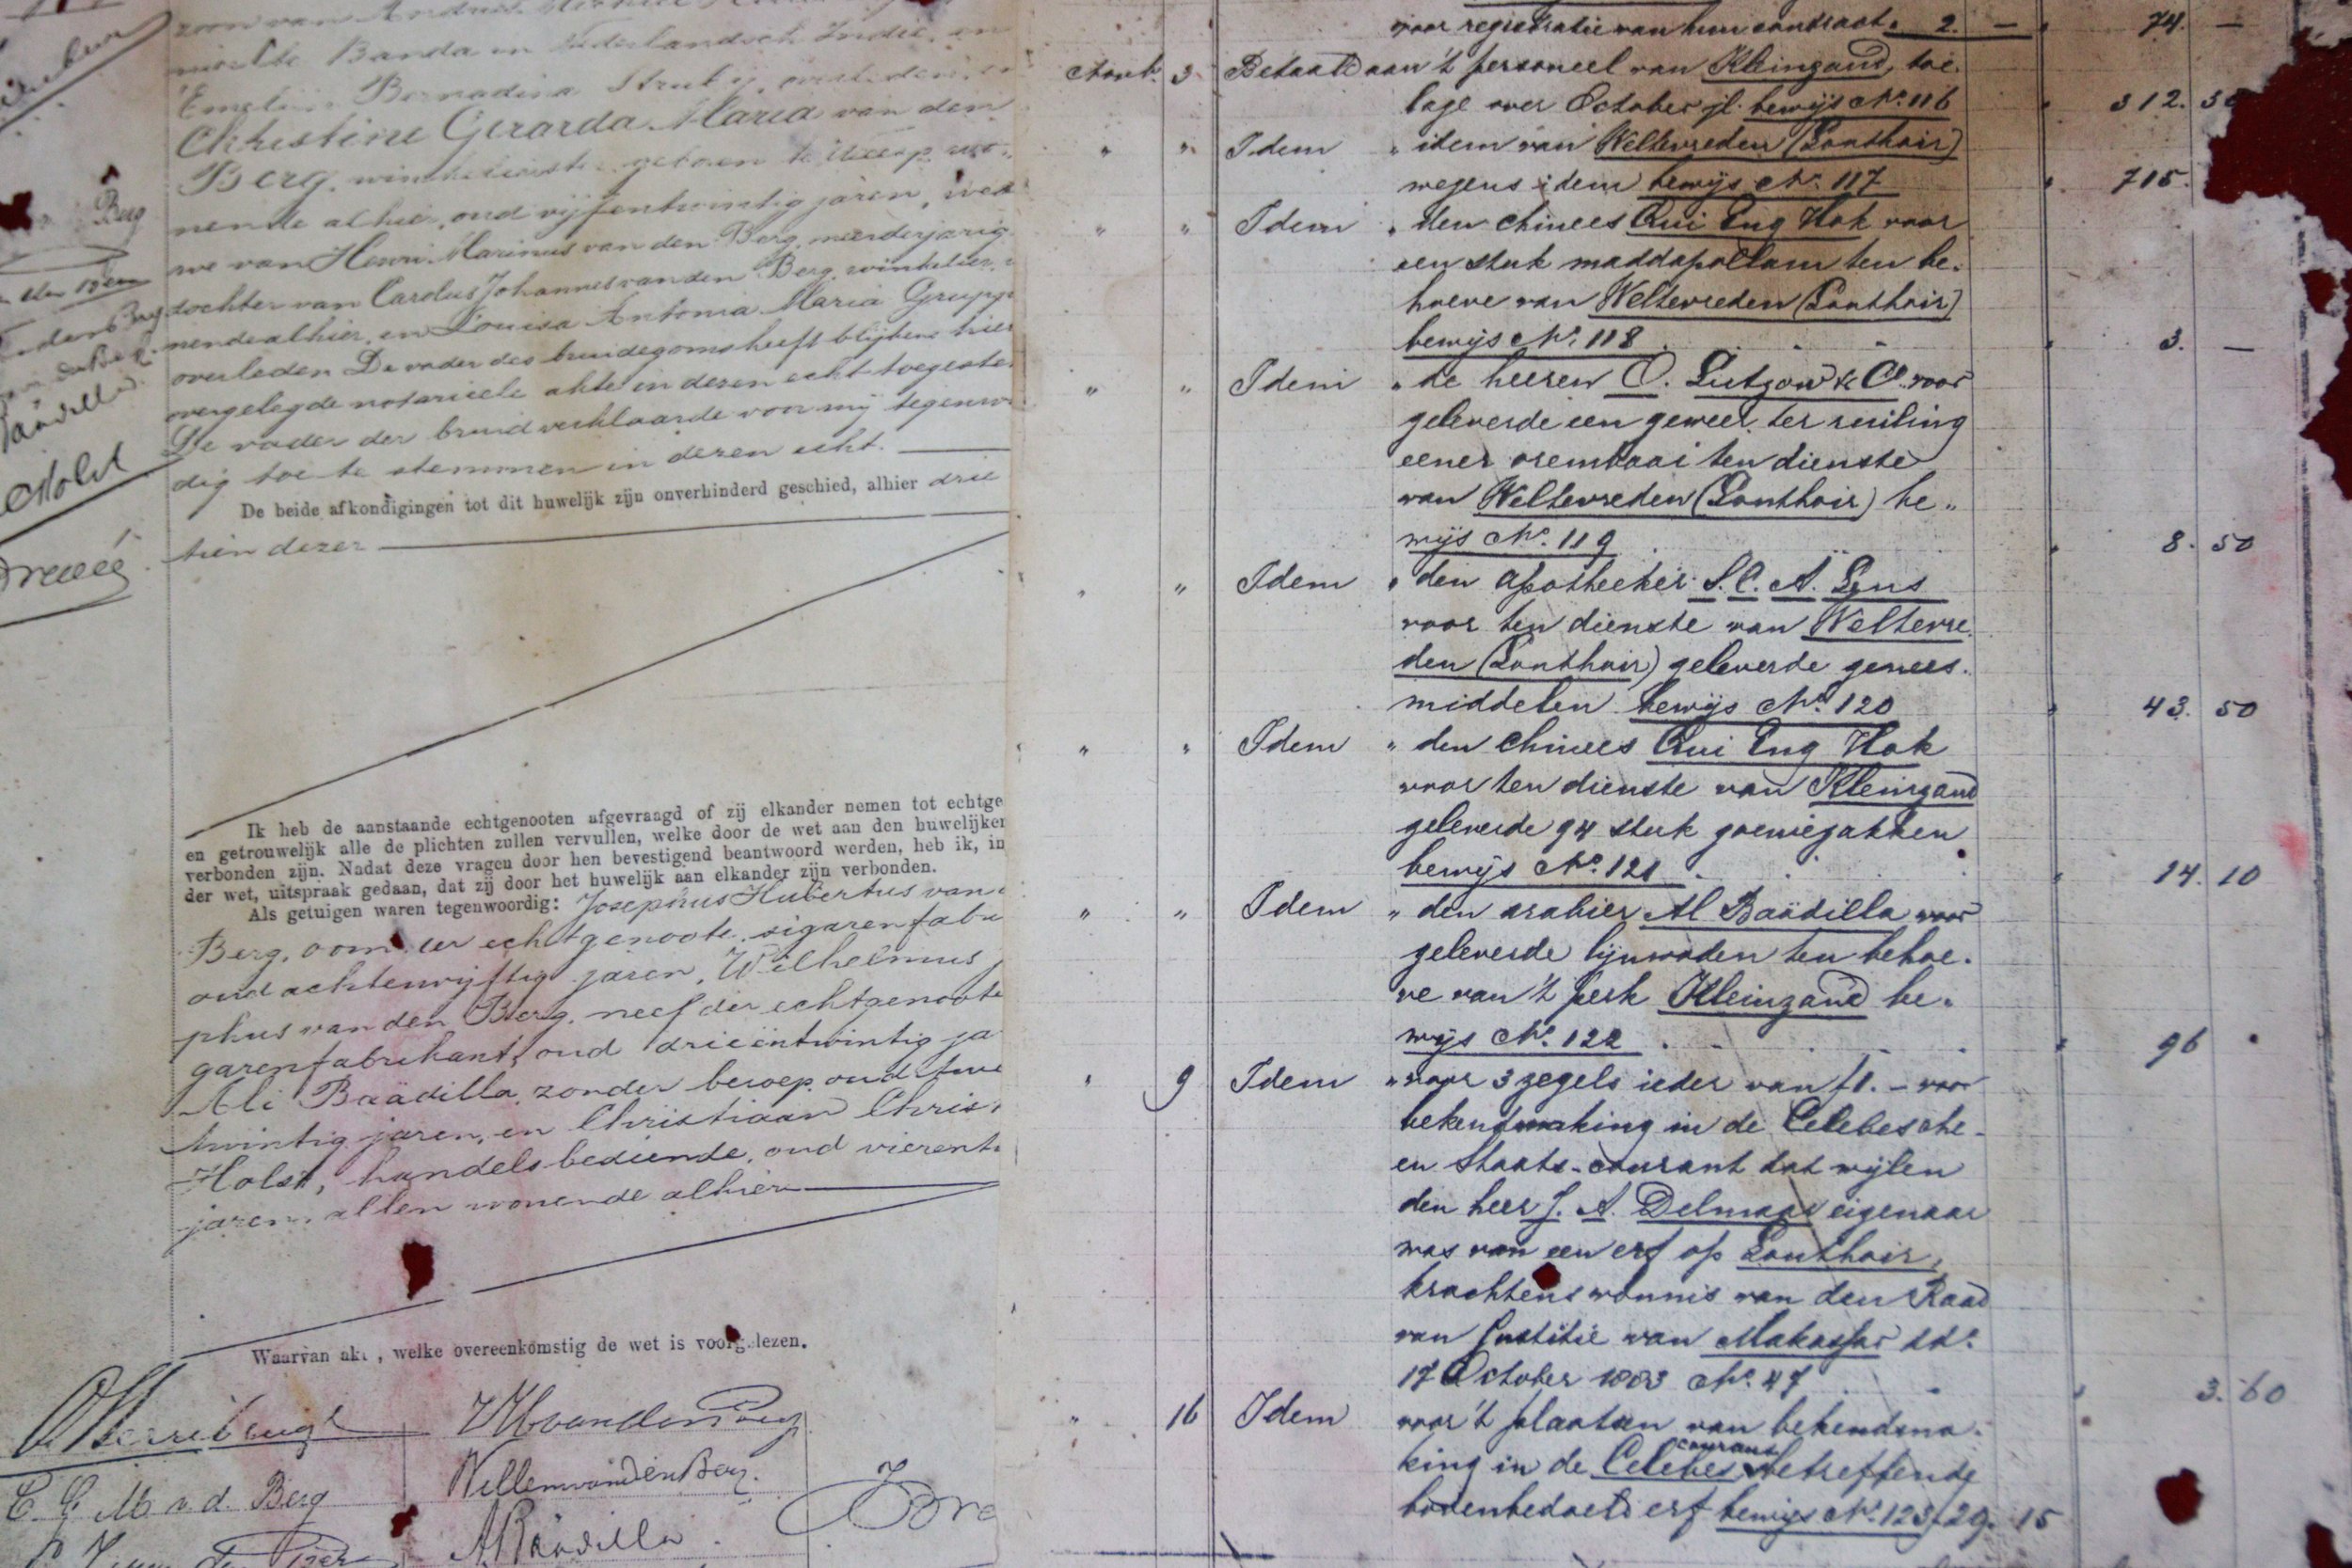 zoon van
Banda in Nederlandsch Indië, en
Bernadina overleden, en
Christine Gerarda Maria van den
Berg, winkelierster geboren te wo-
nende alhier, oud vijfentwintig jaren,
we van Henri Marinus van den Berg, meerderjarig
dochter van Carolus Johannes van den Berg, winkelier,
nende alhier, en Louisa Antonia Maria
overleden De vader des bruidegoms heeft blijkens hier
overgelegde notarieele akte in dezen echt toegeste
De vader der bruid verklaarde voor mij tegenwo
dig toe te stemmen in dezen echt.
De beide afkondigingen tot dit huwelijk zijn onverhinderd geschied, alhier drie
tien dezer
Ik heb de aanstaande echtgenooten afgevraagd of zij elkander nemen tot echtge
en getrouwelijk alle de plichten zullen vervullen, welke door de wet aan den huwelijken
verbonden zijn. Nadat deze vragen door hen bevestigend beantwoord werden, heb ik, in
der wet, uitspraak gedaan, dat zij door het huwelijk aan elkander zijn verbonden.
Als getuigen waren tegenwoordig: Josephus Hubertus van
Berg, oom der echtgenoote, sigarenfabri
oud achtenvijftig jaren, Wilhelmus
phus van den Berg, neef der echtgenoote
garenfabrikant, oud drieëntwintig ja
Ali Baädilla, zonder beroep, oud twee
twintig jaren, en Christiaan Chris
Holst, handelsbediende, oud vierent
jaren, allen wonende alhier
Waarvan akt , welke overeenkomstig de wet is voorg lezen.
JHvandenBerg
C. G. M. v. d. Berg
WillemvandenBerg.
ABaädilla.
Berg
Baädilla
Holst
voor registratie van hun contract. " 2. — " 74. —
3 Betaald aan 't personeel van Kleinzand, toe-
lage over October jl. bewijs No. 116 " 312. 50
" " Idem " idem van Weltevreden (Lonthoir)
wegens idem bewijs No. 117 " 715.
" " Idem " den chinees Qui Eng Hok voor
een stuk maddapollam ten be-
hoeve van Weltevreden (Lonthoir)
bewijs No. 118 " 3. —
" " Idem " de heeren O. Lutzow & Co. voor
geleverde een geweer ter ruiling
eener orembaai ten dienste
van Weltevreden (Lonthoir) be-
wijs No. 119 " 8. 50
" " Idem " den apotheeker S. C. A. Lens
voor ten dienste van Weltevre-
den (Lonthoir) geleverde genees-
middelen bewijs No. 120 " 43. 50
" " Idem " den chinees Qui Eng Hok
voor ten dienste van Kleinzand
geleverde 94 stuk goeniezakken
bewijs No. 121 " 14. 10
" " Idem " den arabier Al Baädilla voor
geleverde lijnwaden ten behoe-
ve van 't perk Kleinzand be-
wijs No. 122 " 96 "
" 9 Idem " voor 3 zegels ieder van f 1. - voor
bekendmaking in de Celebesche-
en Staats-courant dat wijlen
den heer J. A. Delmaar eigenaar
was van een erf op Lonthoir,
krachtens vonnis van den Raad
van Justitie van Makassar dd.
17 October 1883 No. 47 " 3. 60
" 16 Idem voor 't plaatsen van bekendma-
king in de Celebes courant betreffende
bovenbedoeld erf bewijs No. 123 f 29. 15